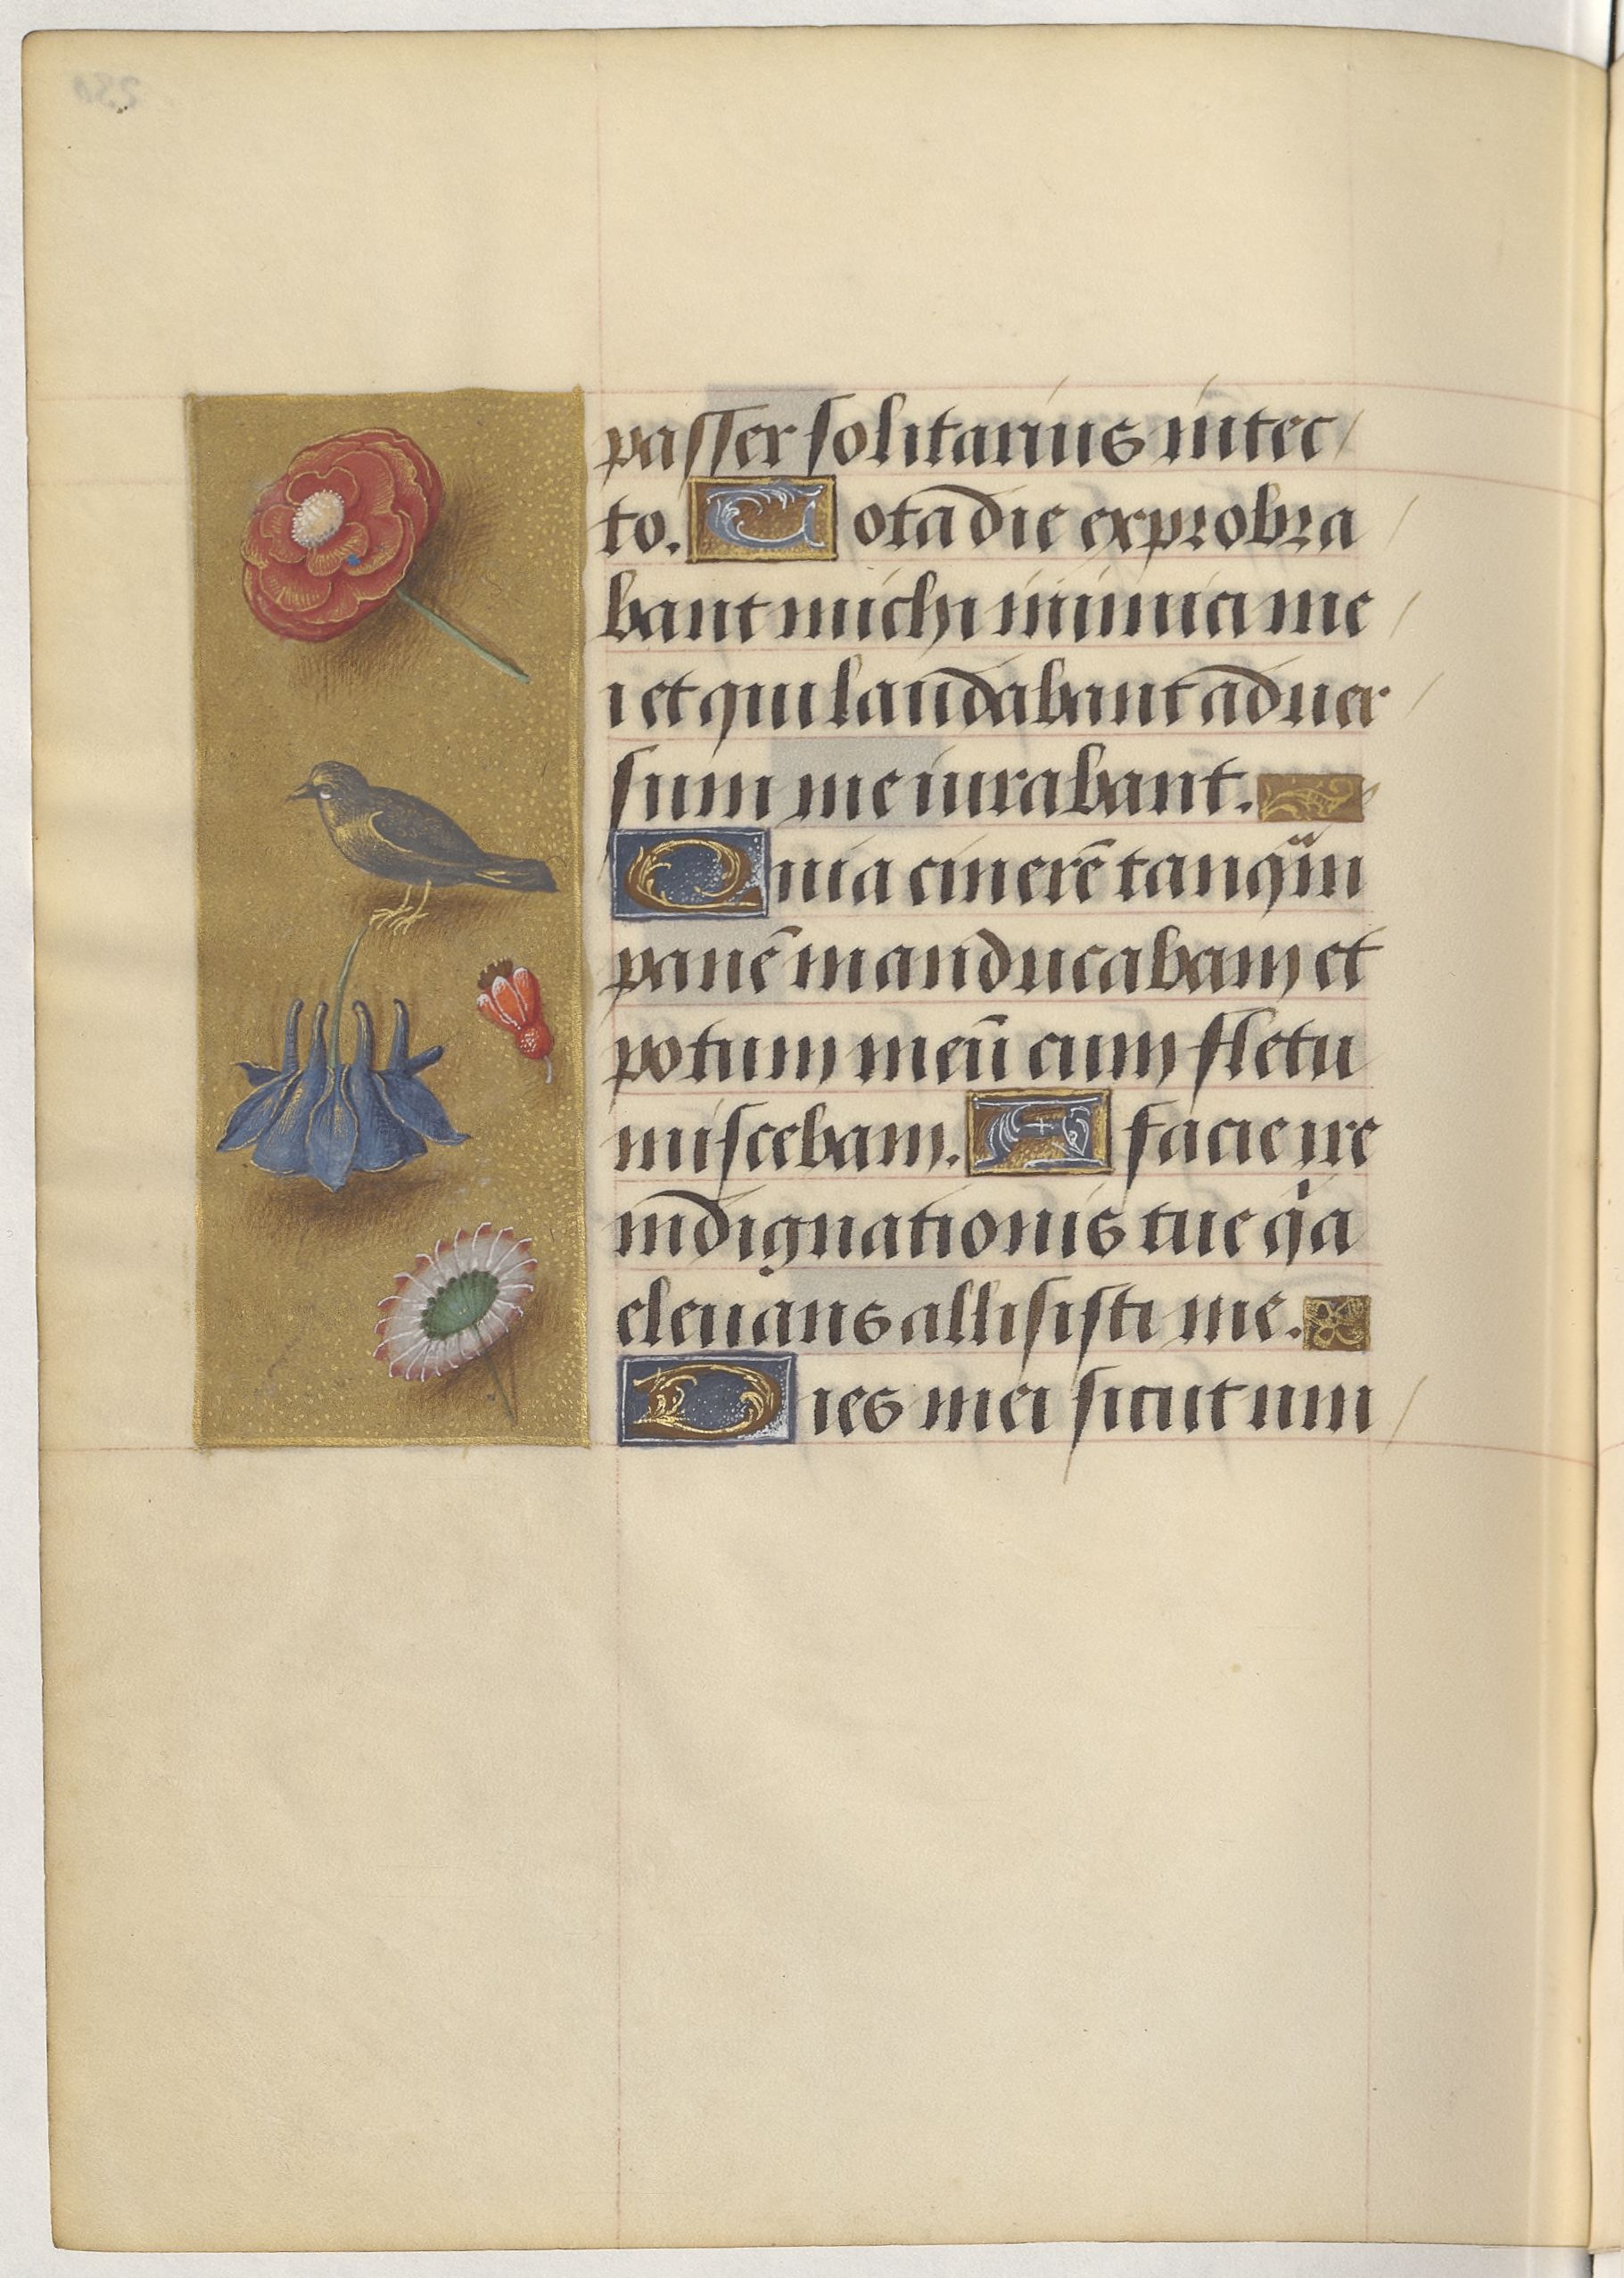 passer solitarius in tec
to. Tota die exprobra
bant michi inimici me
i et qui laudabant aduer
sum me iurabant.
Quia cinerē tanq̈m
panē manducabam et
potum meū cum fletu
miscebam. A facie ire
indignationis tue qͥa
eleuans allisisti me.
Dies mei sicut um